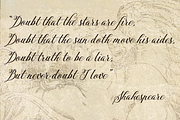 "Doubt that the stars are fire,
Doubt that the sun doth move his aides,
Doubt truth to be a liar,
But never doubt I love"
Shakespeare